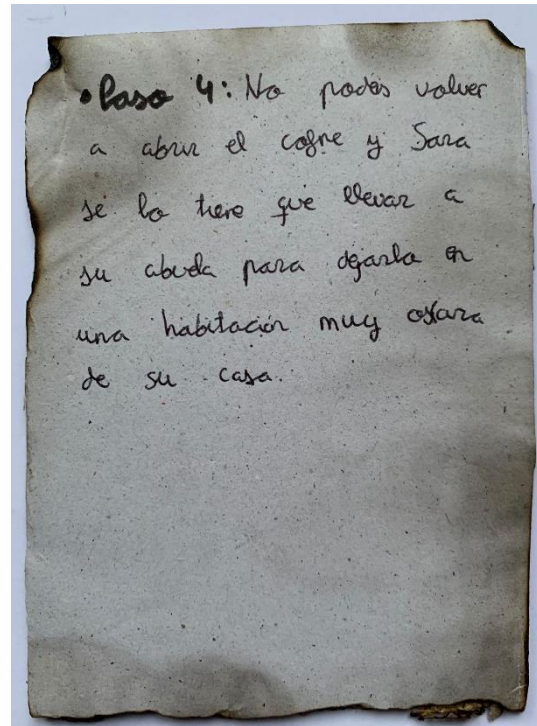 • Paso 4: No podéis volver
a abrir el cofre y Sara
se lo tiene que llevar a
su abuela para dejarlo en
una habitación muy oscura
de su casa.